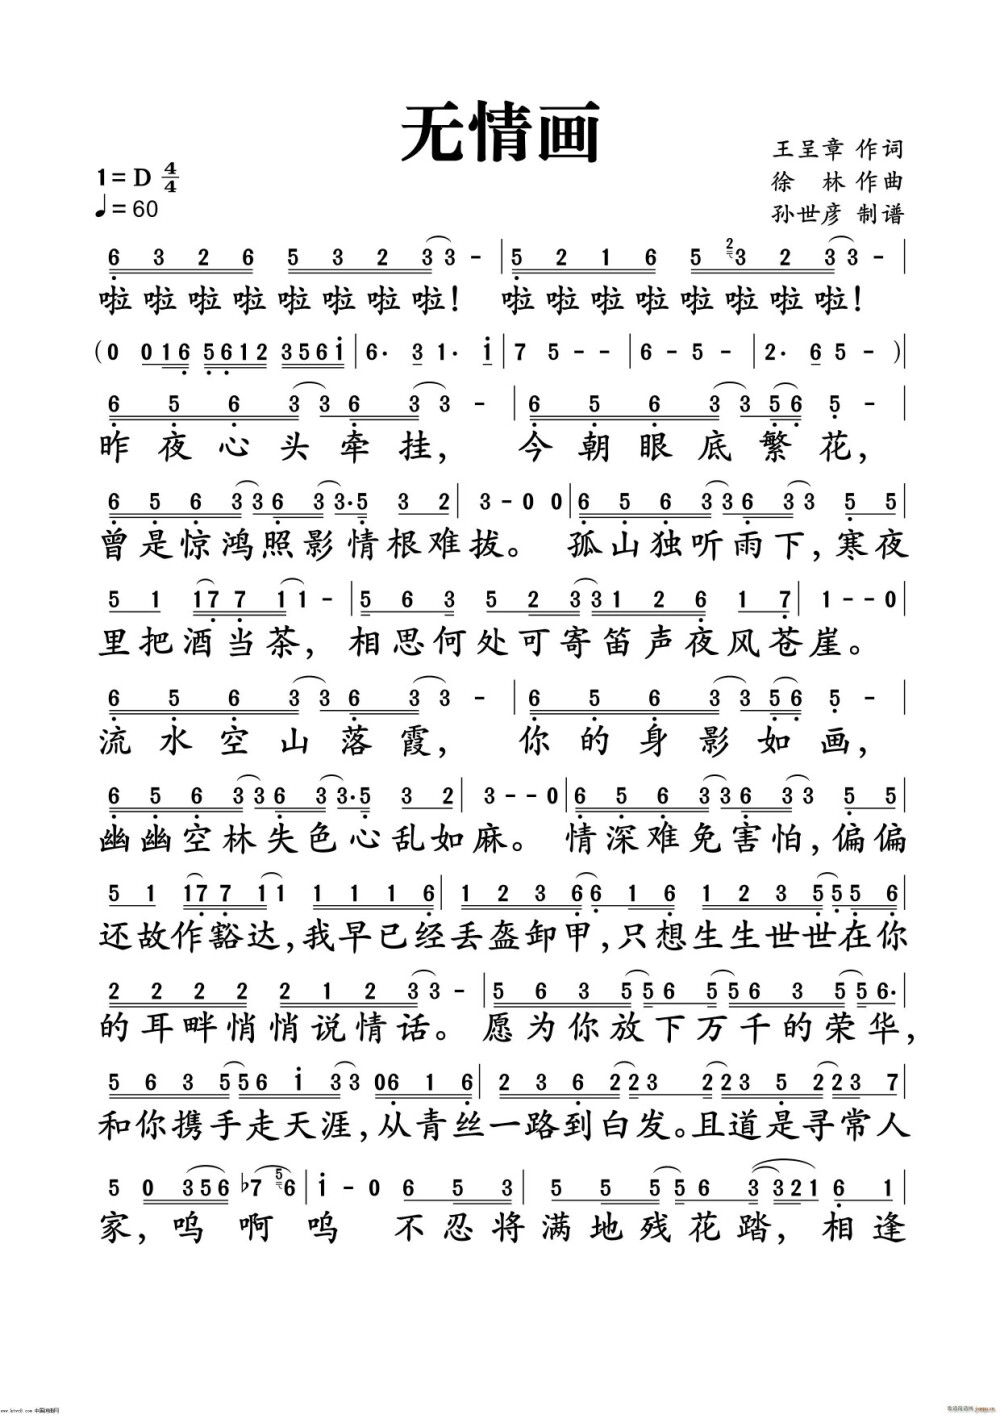 无情画
王呈章 作词
1=D 4/4
徐 林 作曲
♩=60
孙世彦 制谱
6 3 2 6 5 3 2 3 3 - | 5 2 1 6 5 2 3 2 3 3 - |
啦啦啦啦啦啦啦啦! 啦啦啦啦啦啦啦啦!
(0 0 1 6 5 6 1 2 3 5 6 i | 6· 3 1· i | 7 5 - - | 6 - 5 - | 2· 6 5 - )|
6 5 6 3 3 6 3 3 - | 6 5 6 3 3 5 6 5 - |
昨夜心头牵挂, 今朝眼底繁花,
6 5 6 3 3 6 3 3· 5 3 2 | 3 - 0 0 | 6 5 6 3 3 6 3 3 5 5 |
曾是惊鸿照影情根难拔。 孤山独听雨下,寒夜
5 1 1 7 7 1 1 - | 5 6 3 5 2 3 3 1 2 6 1 7 | 1 - - 0 |
里把酒当茶, 相思何处可寄笛声夜风苍崖。
6 5 6 3 3 6 3 3 - | 6 5 6 3 3 5 6 5 - |
流水空山落霞, 你的身影如画,
6 5 6 3 3 6 3 3· 5 3 2 | 3 - - 0 | 6 5 6 3 3 6 3 3 5 5 |
幽幽空林失色心乱如麻。 情深难免害怕,偏偏
5 1 1 7 7 1 1 1 1 1 6 | 1 2 3 6 6 1 6 1 2 3 5 5 5 6 |
还故作豁达,我早已经丢盔卸甲,只想生生世世在你
2 2 2 2 2 1 2 3 3 - | 5 6 3 5 5 6 5 5 6 3 5 5 6· |
的耳畔悄悄说情话。 愿为你放下万千的荣华,
5 6 3 5 5 6 i 3 3 0 6 1 6 | 2 3 6 2 2 3 2 2 3 5 2 2 3 7 |
和你携手走天涯,从青丝一路到白发。且道是寻常人
5 0 3 5 6 ♭7 5 6 | i - 0 6 5 3 | 5 5 5 5 6 3 3 2 1 6 1 |
家, 呜 啊 呜 不忍将满地残花踏, 相逢